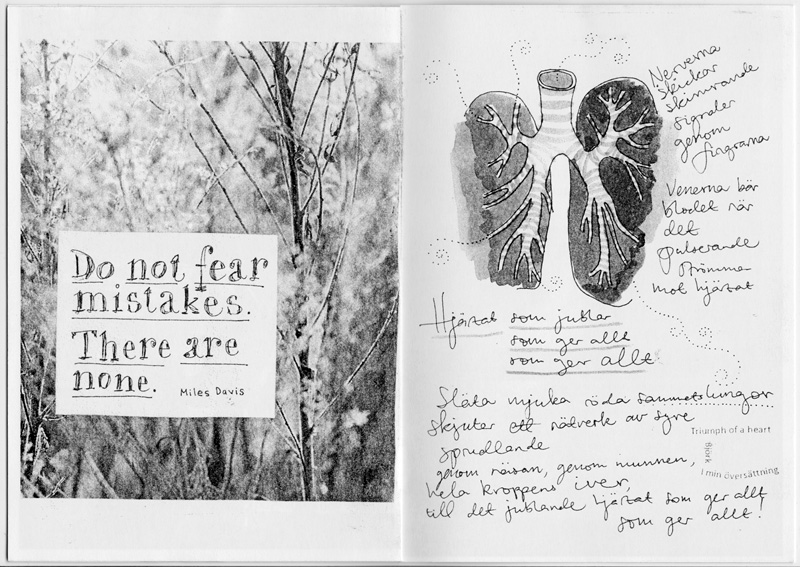 Do not fear
mistakes.
There are
none.
Miles Davis
Nerverna
skickar
skimrande
signaler
genom
fingrarna
Venerna bär
blodet när
det
pulserande
strömmar
mot hjärtat
Hjärtat som jublar
som ger allt
som ger allt
Släta mjuka röda sammetslungor
skjuter ett nätverk av syre
sprudlande
genom näsan, genom munnen,
hela kroppens iver,
till det jublande hjärtat som ger allt
som ger allt!
Triumph of a heart
Björk
I min översättning